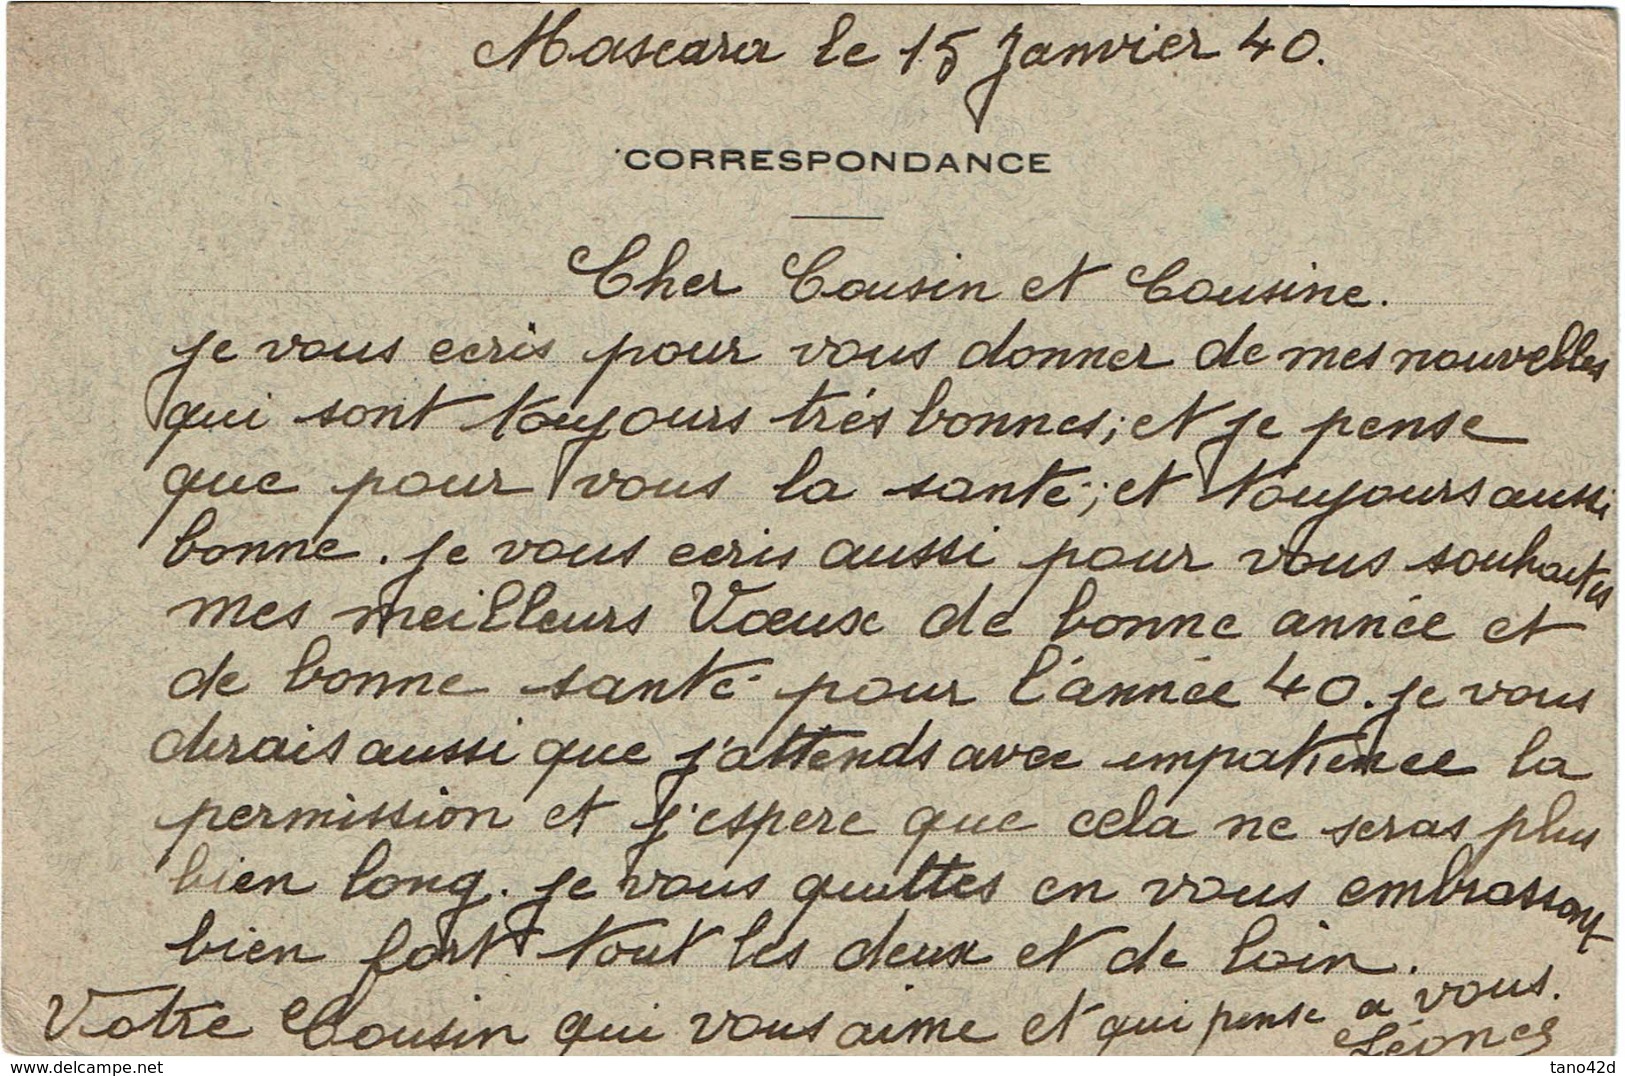 Mascara le 15 Janvier 40.
CORRESPONDANCE
Cher Cousin et Cousine.
je vous ecris pour vous donner de mes nouvelles
qui sont toujours trés bonnes; et je pense
que pour vous la santé; et toujours aussi
bonne. je vous ecris aussi pour vous souhaites
mes meilleurs Vœux de bonne année et
de bonne santé pour l'année 40. je vous
dirais aussi que j'attends avec impatience la
permission et j'espere que cela ne seras plus
bien long. je vous quittes en vous embrassant
bien fort tout les deux et de loin.
Votre Cousin qui vous aime et qui pense a vous.
Léonce
delcampe.net
tano42d